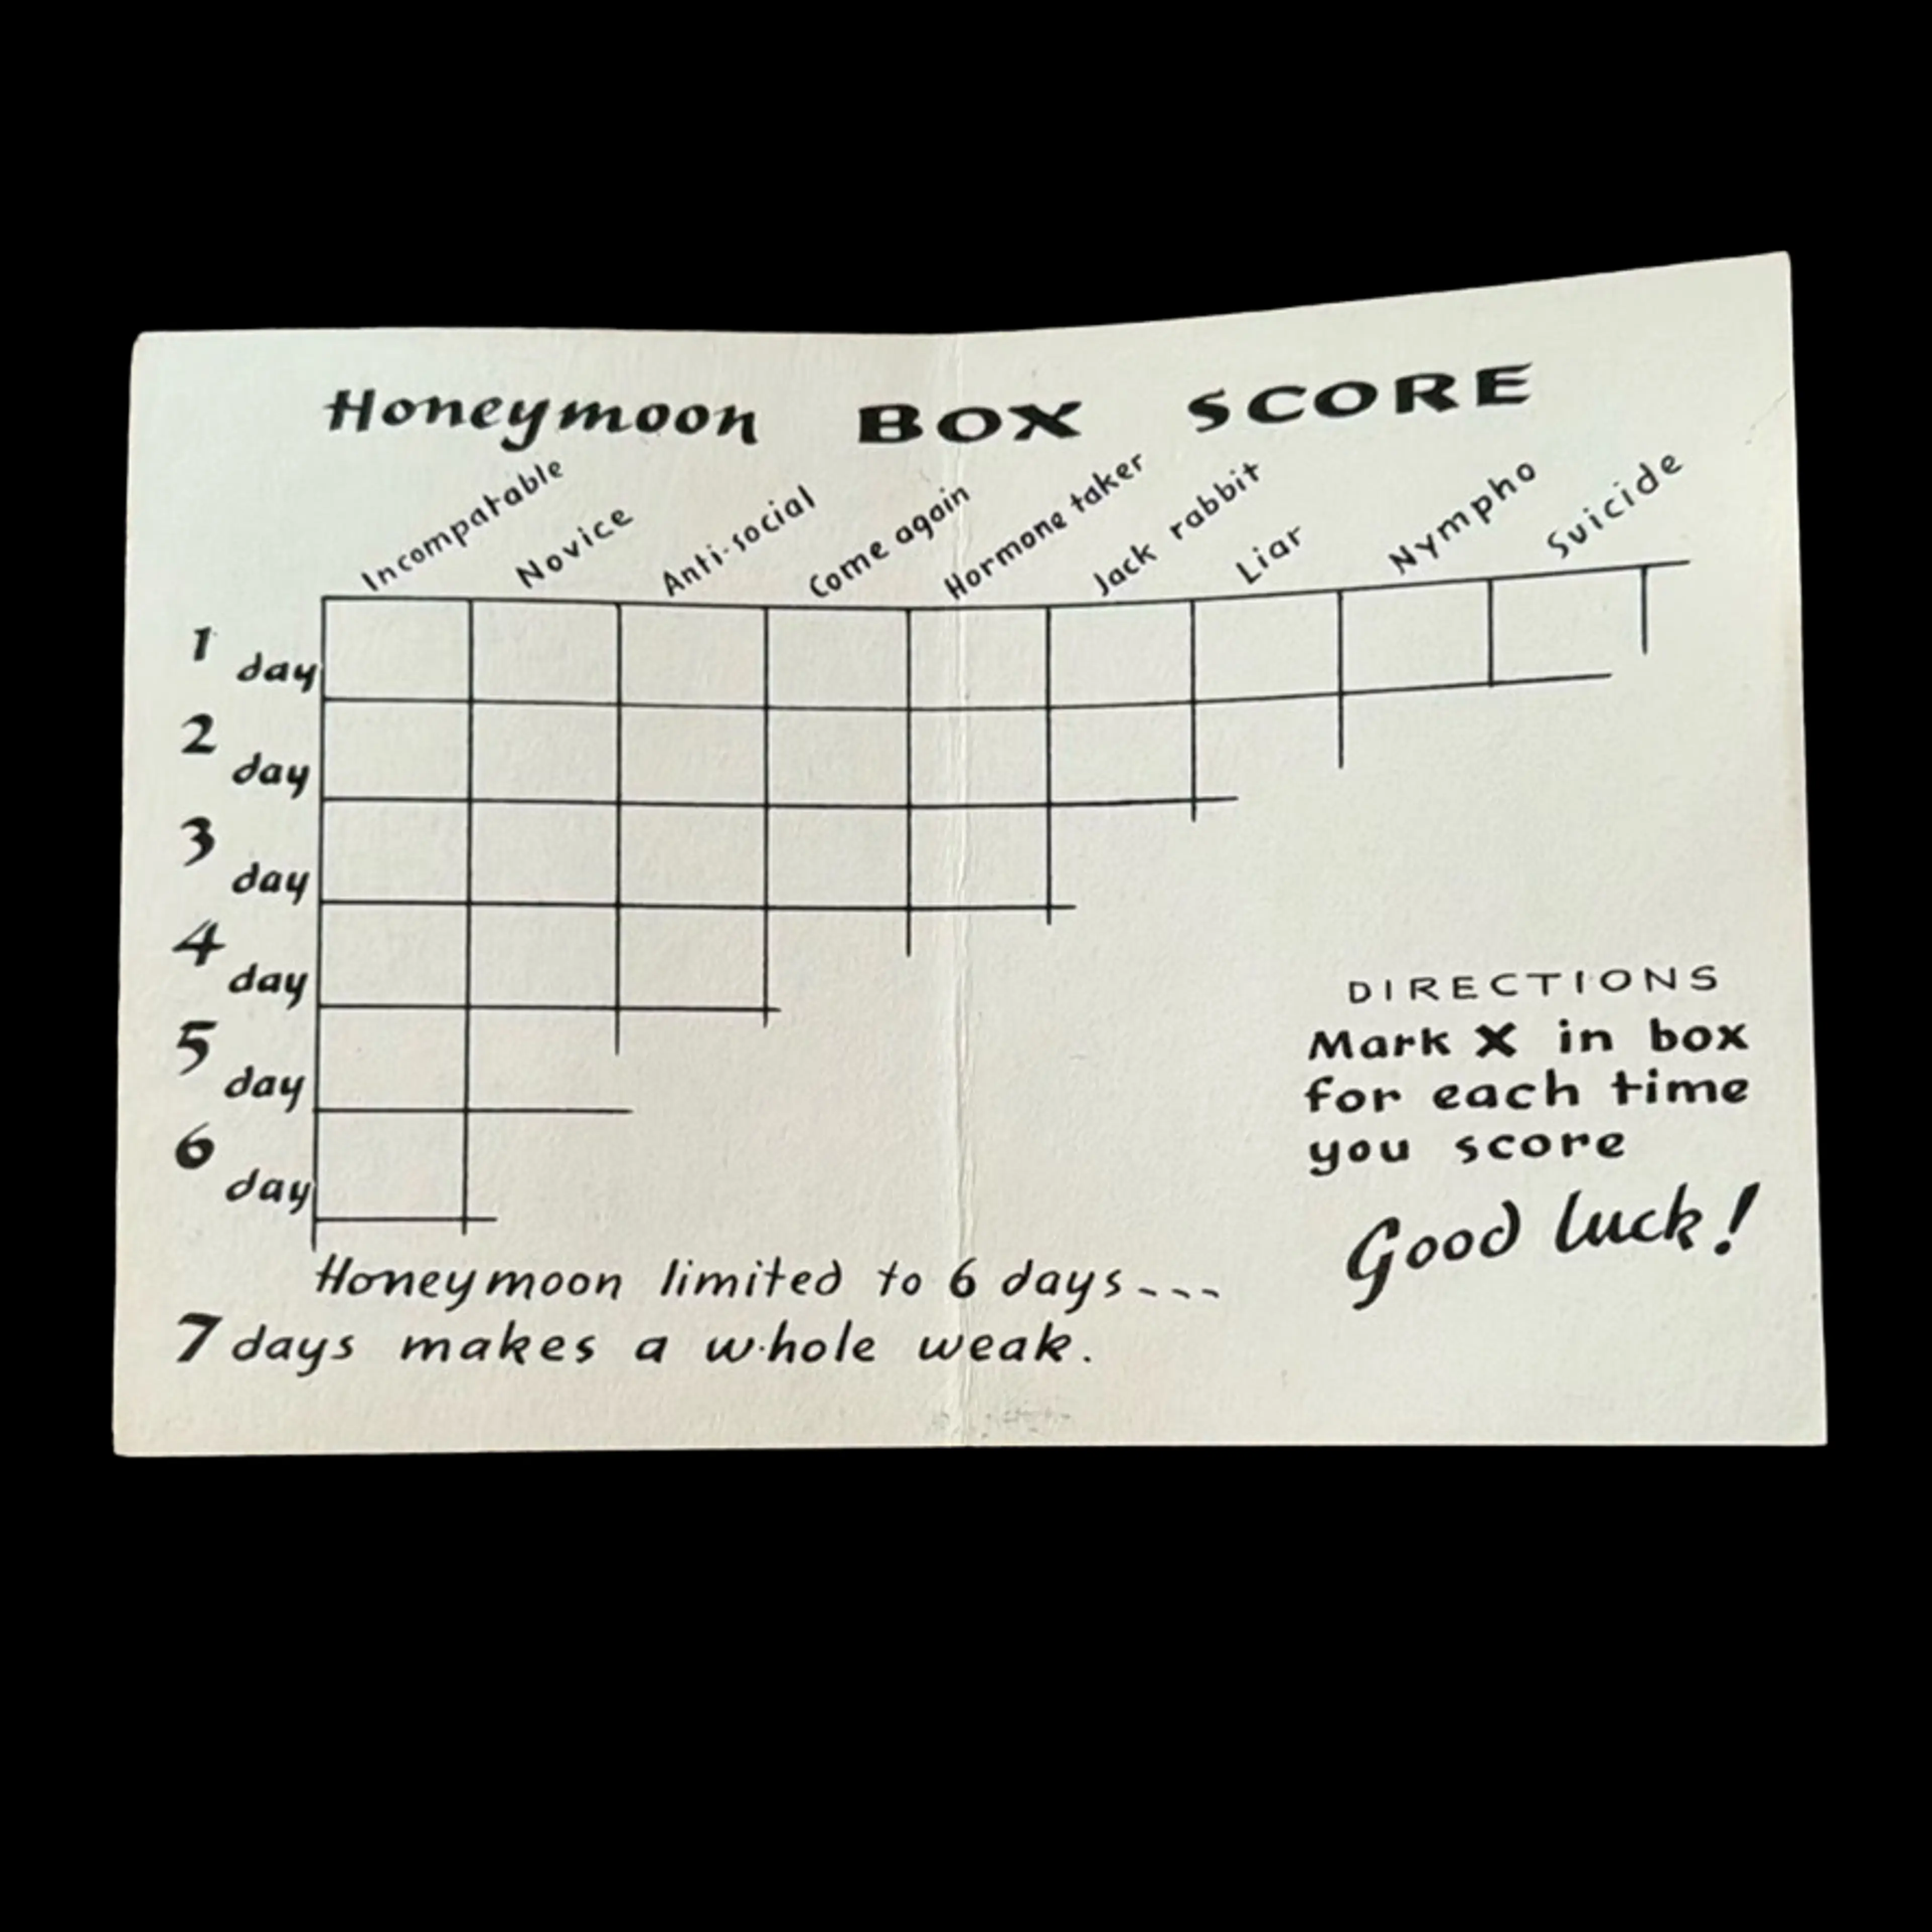 Honeymoon BOX SCORE
Incompatable
Novice
Anti-social
Come again
Hormone taker
Jack rabbit
Liar
Nympho
Suicide
1 day
2 day
3 day
4 day
5 day
6 day
DIRECTIONS
Mark X in box
for each time
you score
Good luck!
Honeymoon limited to 6 days---
7 days makes a whole weak.